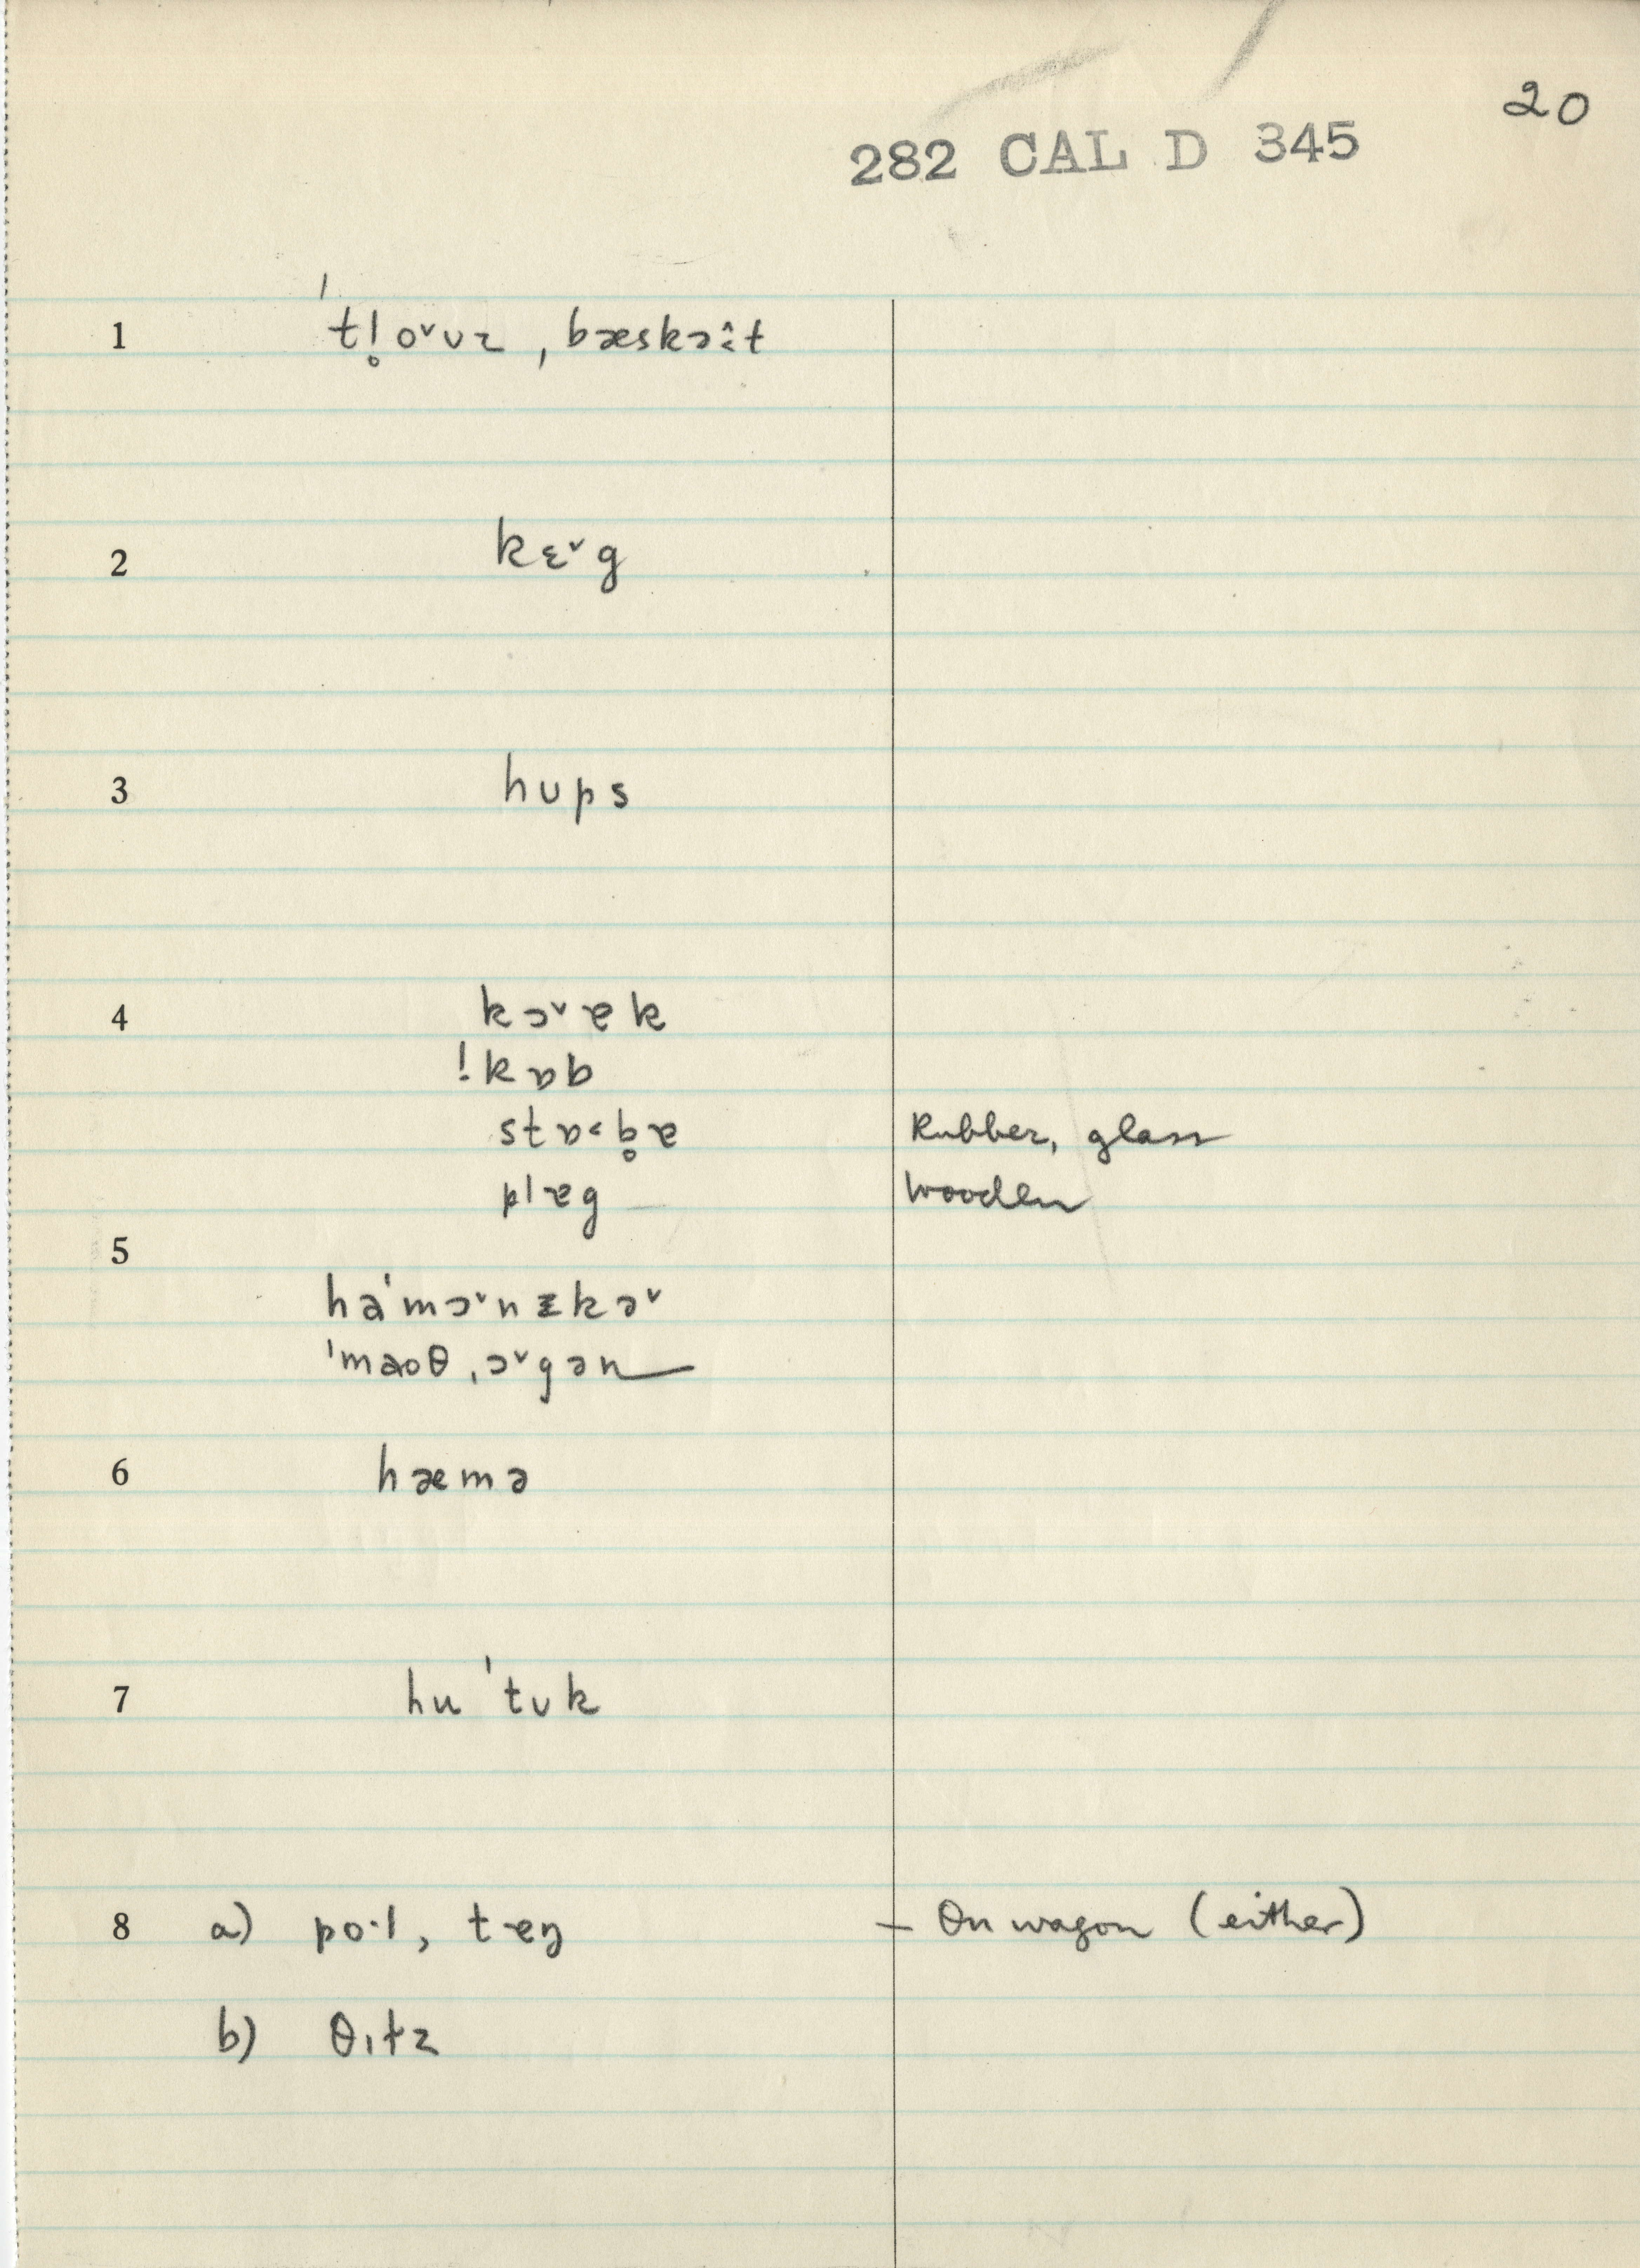 20
282 CAL D 345
1 ˈtl̥oˇʊz, bæskəî:t
2 kɛˇg
3 hʊps
4 kɔˇɐk
!kɒb
stɒ˂b̥ɐ Rubber, glass
plɐg Wooden
5
haˈmɔˇnɪkəˇ
ˈmaoθ ˌɔˇgən
6 hæmə
7 huˈtʊk
8 a) po·l, tɐŋ – On wagon (either)
b) θɪlz